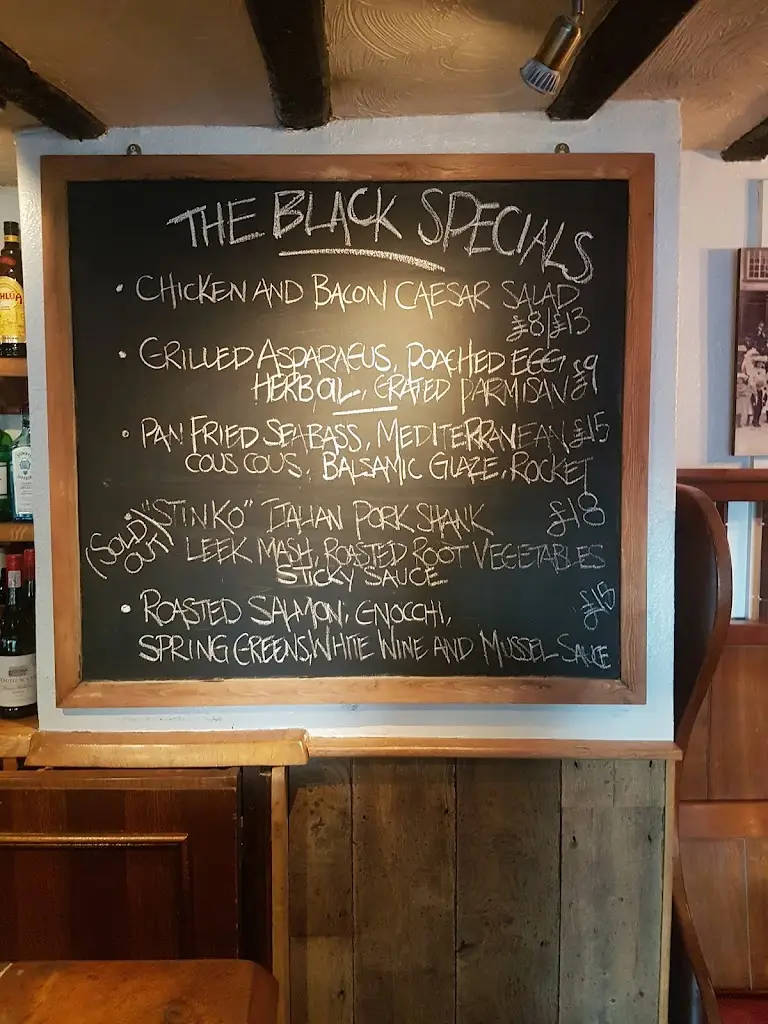 THE BLACK SPECIALS
• CHICKEN AND BACON CAESAR SALAD
£8|£13
• GRILLED ASPARAGUS, POACHED EGG £9
HERB OIL, GRATED PARMISAN
• PAN FRIED SEABASS, MEDITERRANEAN £15
COUS COUS, BALSAMIC GLAZE, ROCKET
"STINKO" ITALIAN PORK SHANK £18
(SOLD OUT)
LEEK MASH, ROASTED ROOT VEGETABLES
STICKY SAUCE
• ROASTED SALMON, GNOCCHI, £15
SPRING GREENS, WHITE WINE AND MUSSEL SAUCE